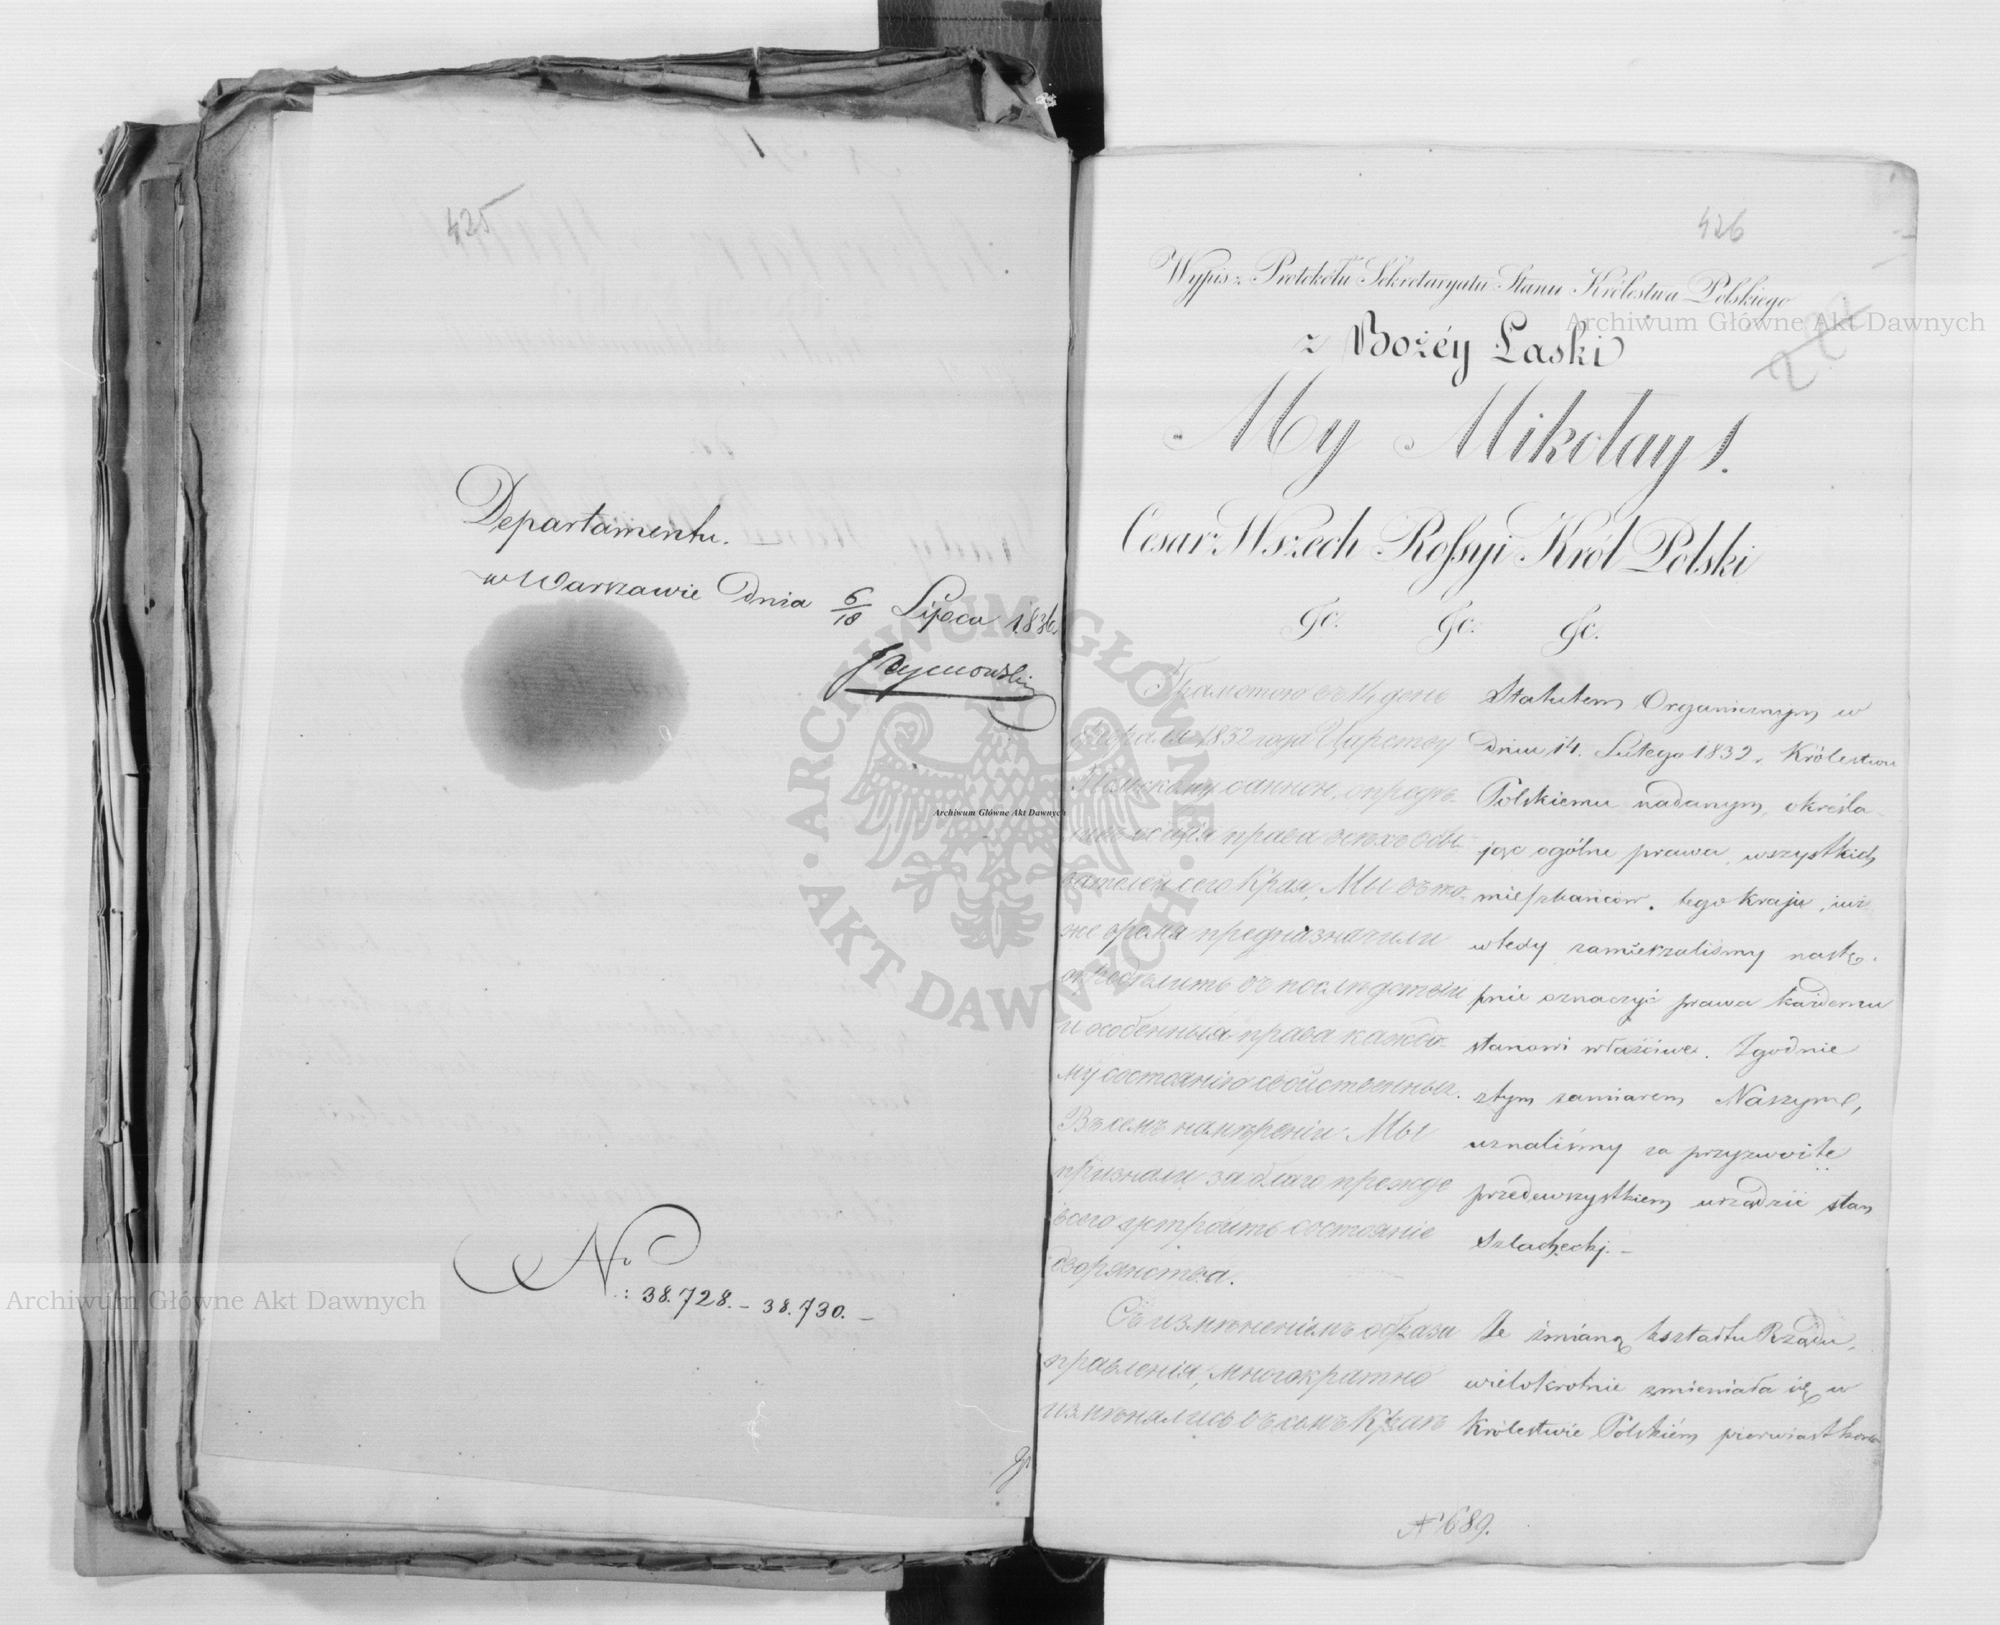 425
Departamentu.
w Warszawie Dnia 6/18 Lipca 1836.
No: 38.728. – 38.730. –
426
Wypis z Protokółu Sekretaryatu Stanu Królestwa Polskiego
z Bożéy Łaski
My Mikołay I.
Cesarz Wszech Rossyi Król Polski
&c. &c. &c.
Грамотою въ 14 день
Февраля 1832 года Царству
Польскому данною, опредѣ-
ливъ общія права всѣхъ обы-
вателей сего Края, Мы въ то-
же время предназначили
опредѣлить въ послѣдствіи
и особенныя права каждо-
му состоянію свойственныя.
Въ семъ намѣреніи Мы
признали за благо прежде
всего устроить состояніе
дворянства.
Съ измѣненіемъ образа
правленія, многократно
измѣнялись въ семъ Краѣ
Statutem Organicznym w
dniu 14. Lutego 1832, Królestwu
Polskiemu nadanym, określa-
jąc ogólne prawa wszystkich
mieszkańców tego Kraju, już
wtedy zamierzaliśmy nastę-
pnie oznaczyć prawa każdemu
stanowi właściwe. Zgodnie
z tym zamiarem Naszym,
uznaliśmy za przyzwoite
przedewszystkiem urządzić stan
Szlachecki. –
Ze zmianą kształtu Rządu,
wielokrotnie zmieniała się w
Królestwie Polskiém pierwiastkowa
N 689.
Archiwum Główne Akt Dawnych
Archiwum Główne Akt Dawnych
Archiwum Główne Akt Dawnych
ARCHIWUM GŁÓWNE AKT DAWNYCH